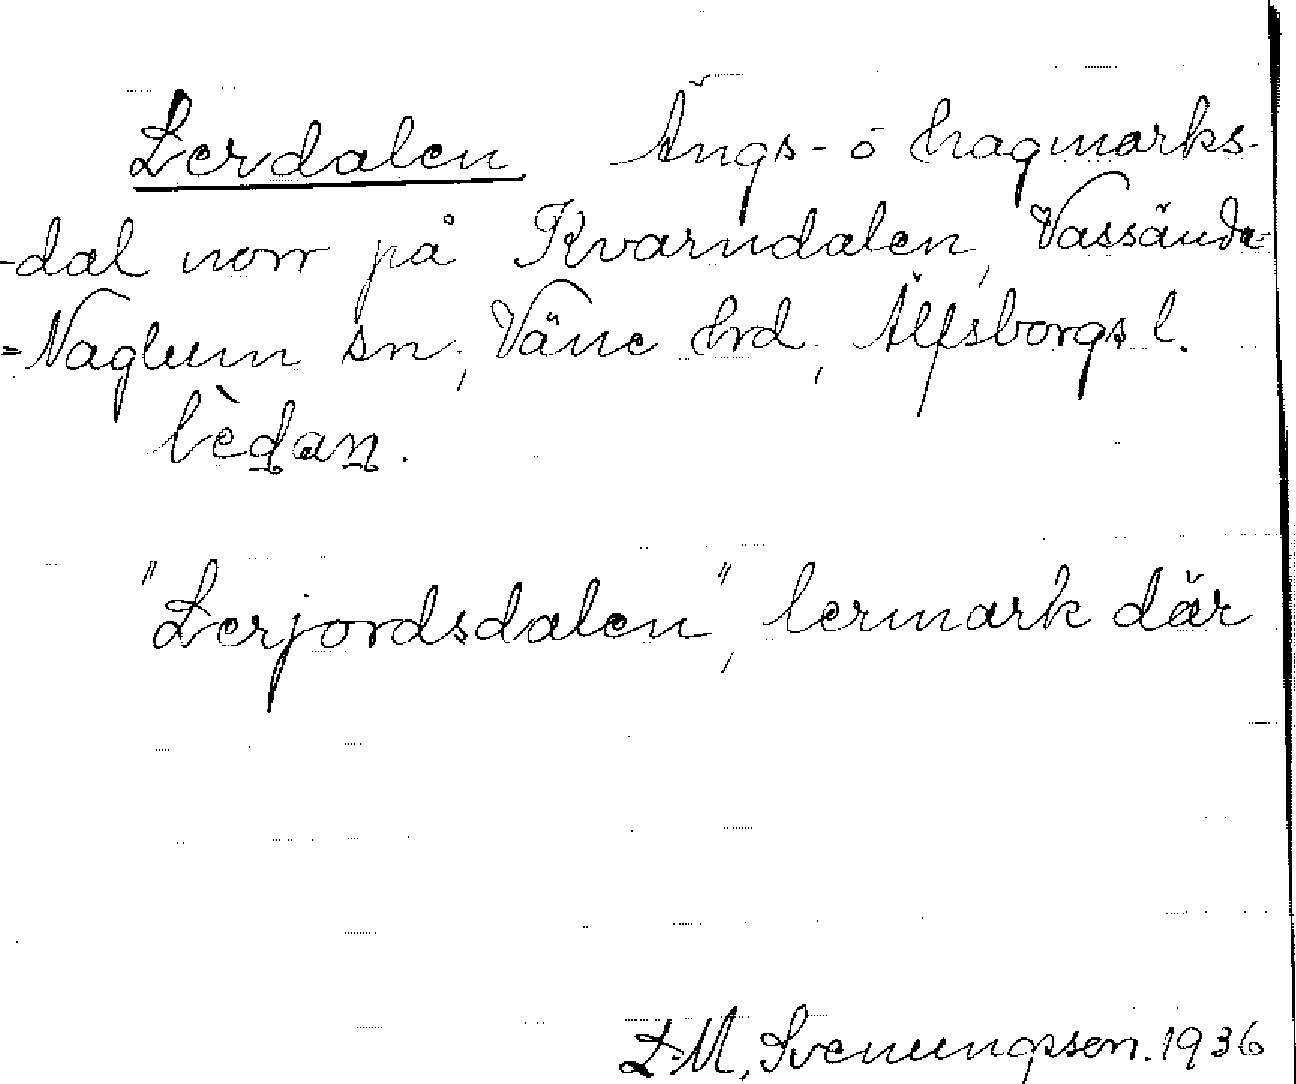 Lerdalen Ängs- o hagmarks-
-dal norr på Kvarndalen, Vassända-
=Naglum sn, Väne hrd, Älfsborgs l.
lèdan.
"Lerjordsdalen", lermark där
L. M. Svenungsson. 1936